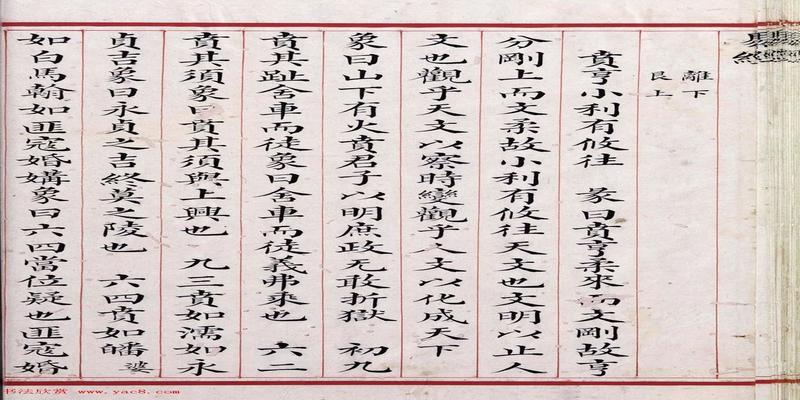 離下
艮上
賁亨小利有攸往 彖曰賁亨柔來而文剛故亨
分剛上而文柔故小利有攸往天文也文明以止人
文也觀乎天文以察時變觀乎人文以化成天下
象曰山下有火賁君子以明庶政无敢折獄 初九
賁其趾舍車而徒象曰舍車而徒義弗乘也 六二
賁其須象曰賁其須與上興也 九三賁如濡如永
貞吉象曰永貞之吉終莫之陵也 六四賁如皤婆
如白馬翰如匪寇婚媾象曰六四當位疑也匪寇婚
书法欣赏 www.yac8.com